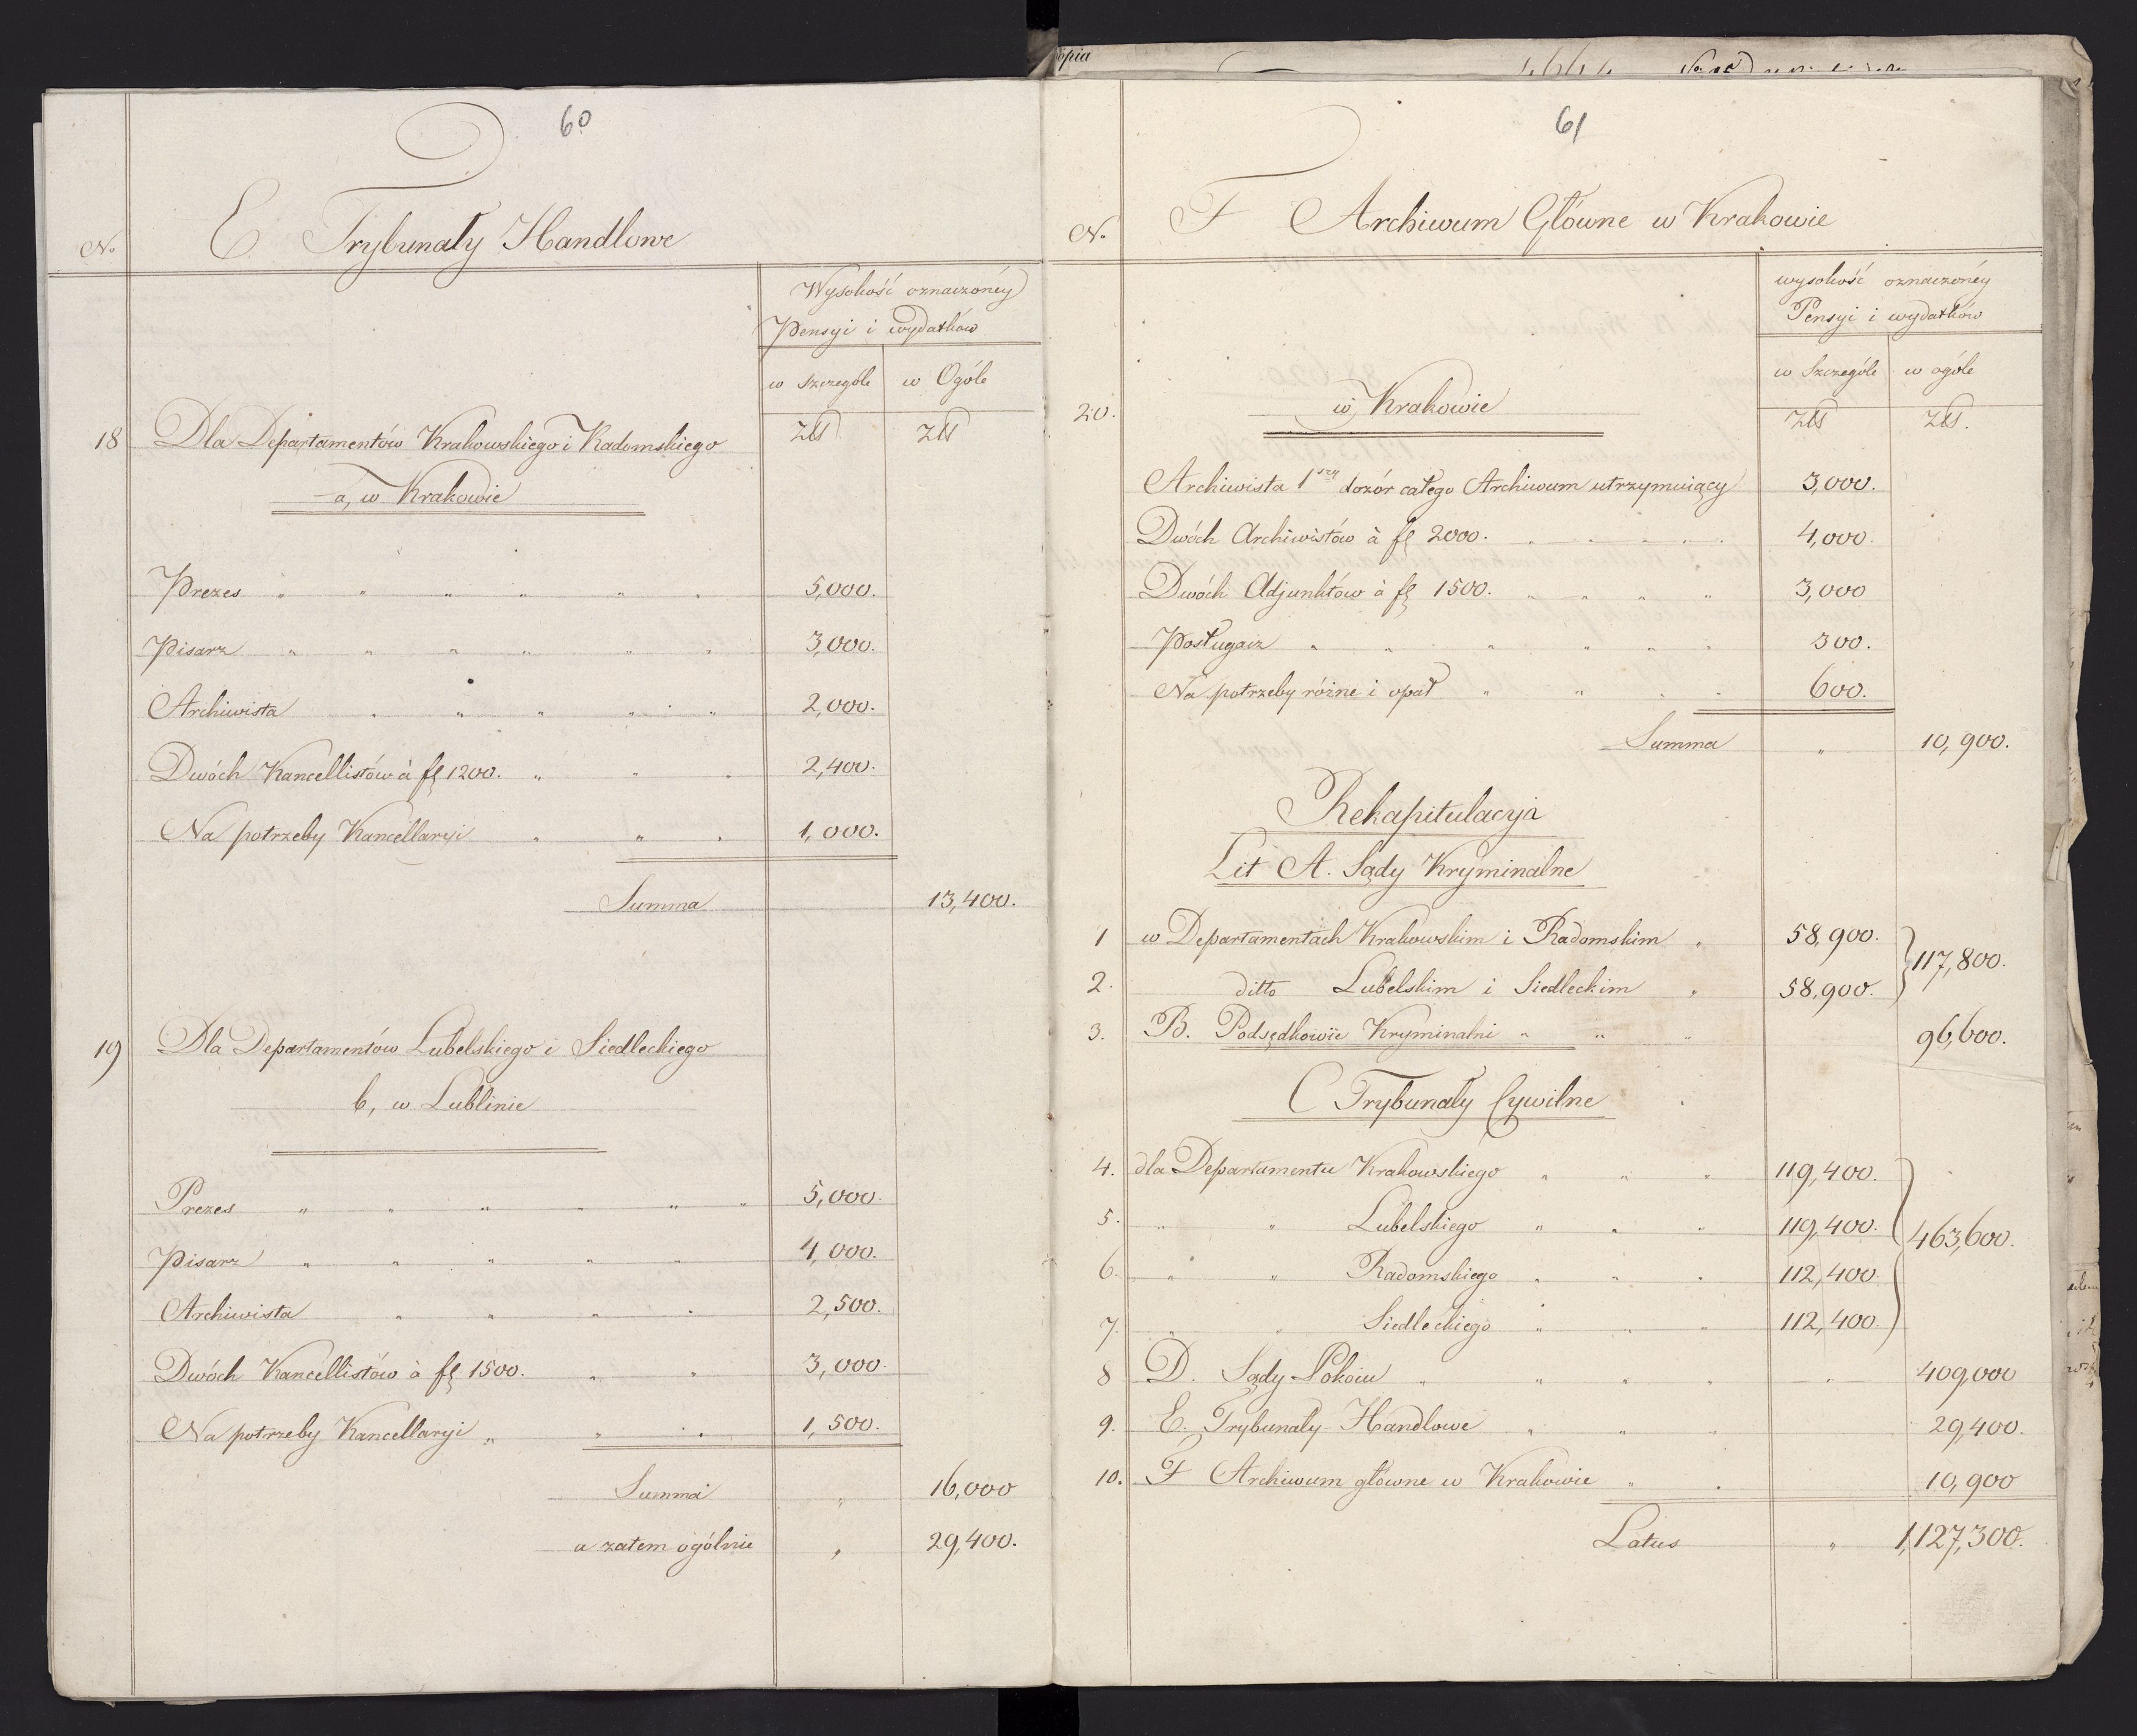 60
No
E Trybunały Handlowe
Wysokość oznaczonéy
Pensyi i wydatków
w szczególe w Ogóle
Złł Złł
18 Dla Departamentów Krakowskiego i Radomskiego
a, w Krakowie
Prezes " " " " " " 5,000.
Pisarz " " " " " " 3,000.
Archiwista " " " " " 2,000.
Dwóch Kancellistów à fl 1200. " " " 2,400.
Na potrzeby Kancellaryi " " " 1,000.
Summa 13,400.
19 Dla Departamentów Lubelskiego i Siedleckiego
b, w Lublinie
Prezes " " " " " " 5,000.
Pisarz " " " " " 4,000.
Archiwista " " " " 2,500.
Dwóch Kancellistów à fl 1500. " " 3,000.
Na potrzeby Kancellaryi " " " 1,500.
Summa " 16,000
a zatem ogólnie " 29,400.
opia
61
No.
F Archiwum Główne w Krakowie
wysokość oznaczonéy
Pensyi i wydatków
w Szczególe w ogóle
Złł Złł.
20. w Krakowie
Archiwista 1szy dozór całego Archiwum utrzymuiący 3,000.
Dwóch Archiwistów à fl 2000. " " " " " 4,000.
Dwóch Adjunktów à fl 1500. " " " " 3,000
Posługacz " " " " " " 300.
Na potrzeby różne i opał " " " " 600.
Summa " 10,900.
Rekapitulacyja
Lit A. Sądy Kryminalne
1 w Departamentach Krakowskim i Radomskim " 58,900.
117,800.
2. ditto Lubelskim i Siedleckim " 58,900.
3. B. Podsędkowie Kryminalni " " " 96,600.
C Trybunały Cywilne
4. dla Departamentu Krakowskiego " " " 119,400.
5. " " Lubelskiego " " " 119,400.
463,600.
6. " " Radomskiego " " " 112,400.
7. " " Siedleckiego " " " 112,400.
8 D. Sądy Pokoiu " " " " " 409,000
9. E. Trybunały Handlowe " " " 29,400.
10. F Archiwum główne w Krakowie " " 10,900
Latus " 1,127,300.